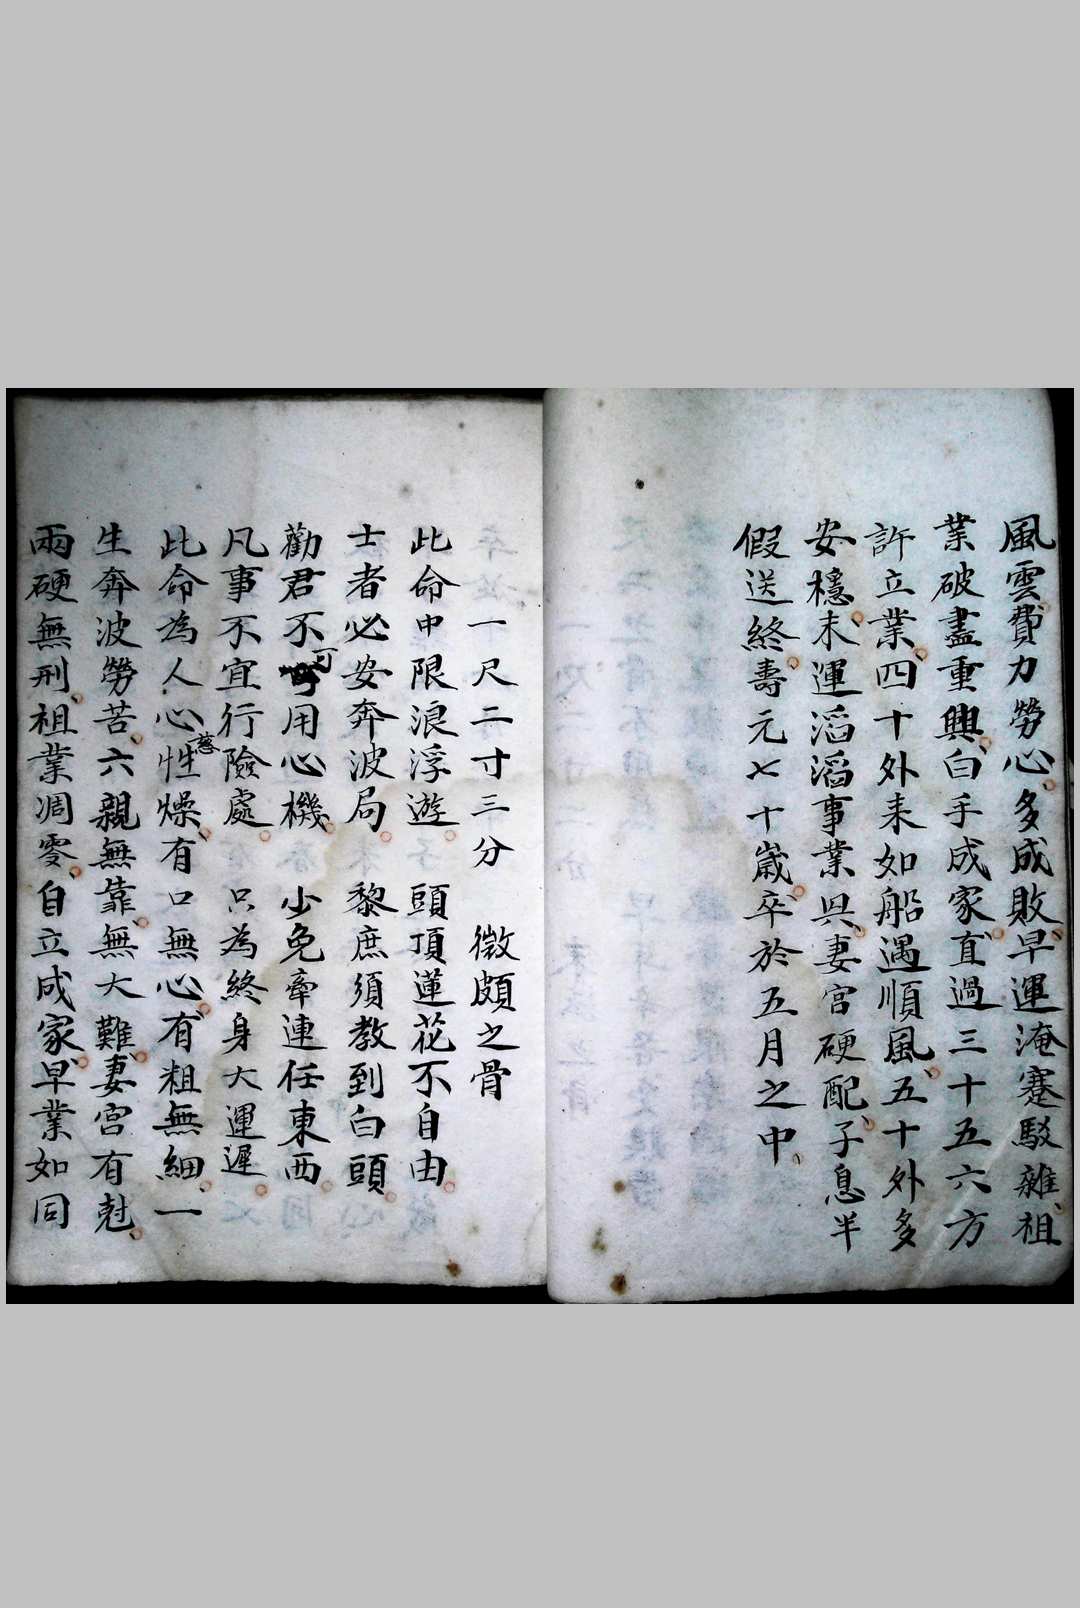 風雲費力勞心多成敗早運淹蹇駁雜祖
業破盡重興白手成家直過三十五六方
許立業四十外來如船遇順風五十外多
安穩末運滔滔事業興妻宮硬配子息半
假送終壽元七十歲卒於五月之中
一尺二寸三分 微頗之骨
此命中限浪浮遊 頭頂蓮花不自由
士者必安奔波局 黎庶須教到白頭
勸君不可用心機 少免牽連任東西
凡事不宜行險處 只為終身大運遲
此命為人心性慈燥有口無心有粗無細一
生奔波勞苦六親無靠無大難妻宮有尅
兩硬無刑祖業凋零自立成家早業如同